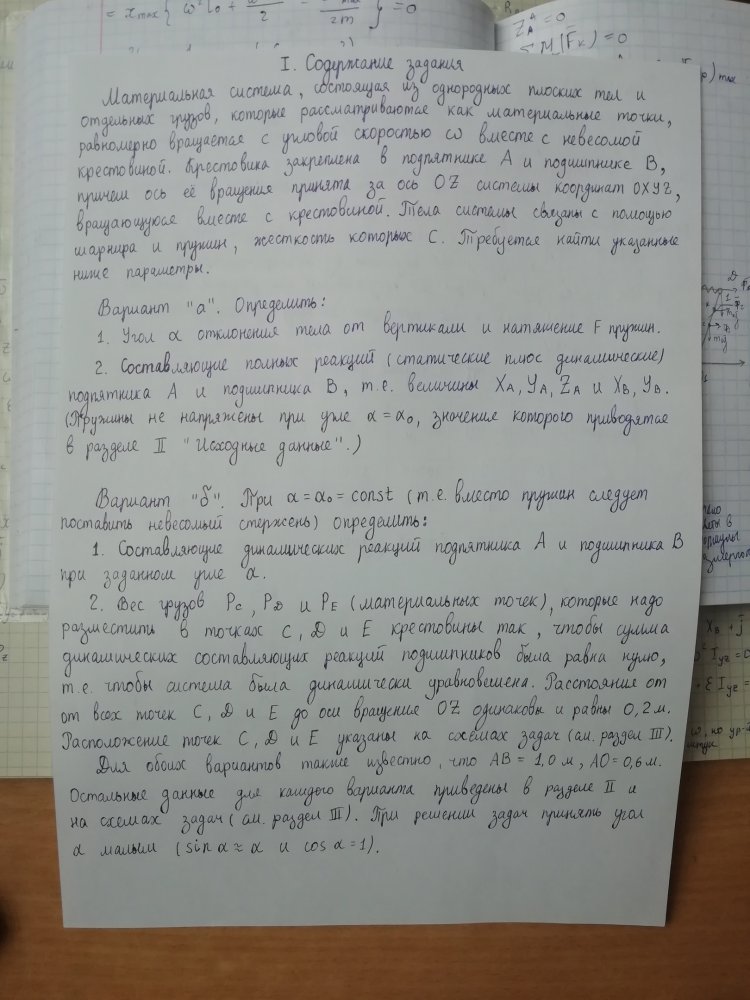 I. Содержание задания
Материальная система, состоящая из однородных плоских тел и
отдельных грузов, которые рассматриваются как материальные точки,
равномерно вращается с угловой скоростью ω вместе с невесомой
крестовиной. Крестовина закреплена в подпятнике A и подшипнике B,
причем ось её вращения принята за ось OZ системы координат OXYZ,
вращающуюся вместе с крестовиной. Тела системы связаны с помощью
шарнира и пружин, жесткость которых C. Требуется найти указанные
ниже параметры.
Вариант "а". Определить:
1. Угол α отклонения тела от вертикали и натяжение F пружин.
2. Составляющие полных реакций (статические плюс динамические)
подпятника A и подшипника B, т.е. величины XA, YA, ZA и XB, YB.
(Пружины не напряжены при угле α = α0, значение которого приводятся
в разделе II "Исходные данные".)
Вариант "б". При α = α0 = const (т.е. вместо пружин следует
поставить невесомый стержень) определить:
1. Составляющие динамических реакций подпятника A и подшипника B
при заданном угле α.
2. Вес грузов PC, PD и PE (материальных точек), которые надо
разместить в точках C, D и E крестовины так, чтобы сумма
динамических составляющих реакций подшипников была равна нулю,
т.е. чтобы система была динамически уравновешена. Расстояние от
от всех точек C, D и E до оси вращение OZ одинаковы и равны 0,2 м.
Расположение точек C, D и E указаны на схемах задач (см. раздел III).
Для обоих вариантов также известно, что AB = 1,0 м, AO = 0,6 м.
Остальные данные для каждого варианта приведены в разделе II и
на схемах задач (см. раздел III). При решении задач принять угол
α малым (sin α ≈ α и cos α = 1).